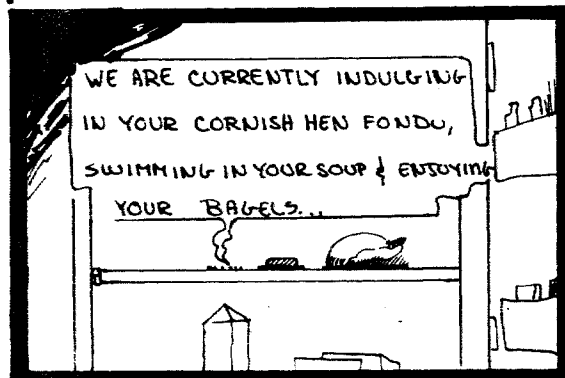 WE ARE CURRENTLY INDULGING
IN YOUR CORNISH HEN FONDU,
SWIMMING IN YOUR SOUP & ENJOYING
YOUR BAGELS...